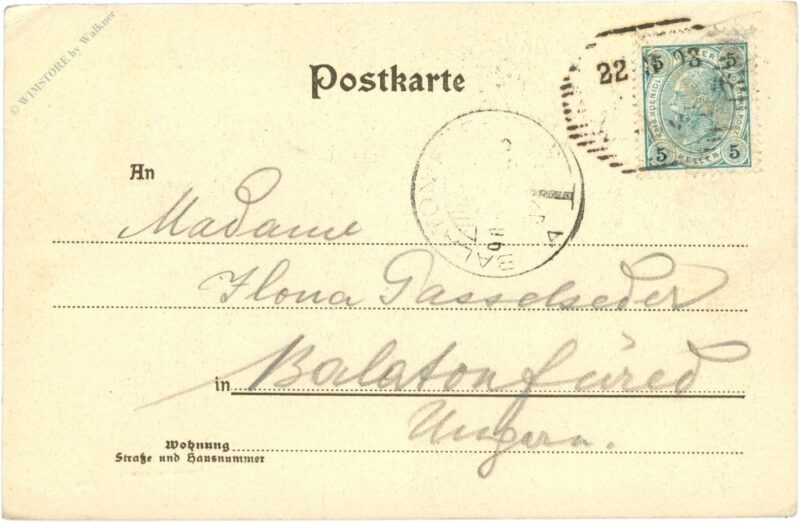 © WIMSTORE by Walkner
Postkarte
22 03
5 5
5 HELLER 5
BALATON
An
Madame
Ilona Passelseder
in Balatonfüred
Ungarn.
Wohnung
Straße und Hausnummer